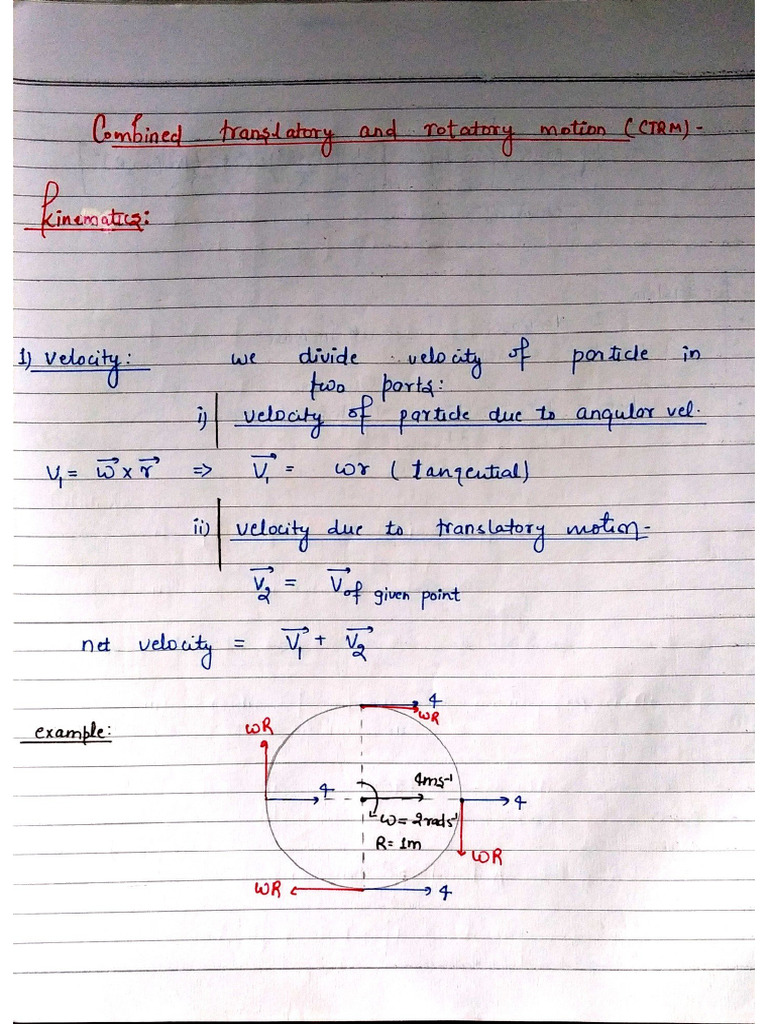 Combined translatory and rotatory motion (CTRM) -
Kinematics:
1) Velocity: we divide velocity of particle in
two parts:
i) velocity of particle due to angular vel.
V₁ = ω⃗ × r⃗ ⇒ V⃗₁ = ωr (tangential)
ii) velocity due to translatory motion-
V⃗₂ = V⃗ of given point
net velocity = V⃗₁ + V⃗₂
example:
4
ωR
ωR
4
4ms⁻¹
4
ω = 2rads⁻¹
R = 1m
ωR
ωR
4